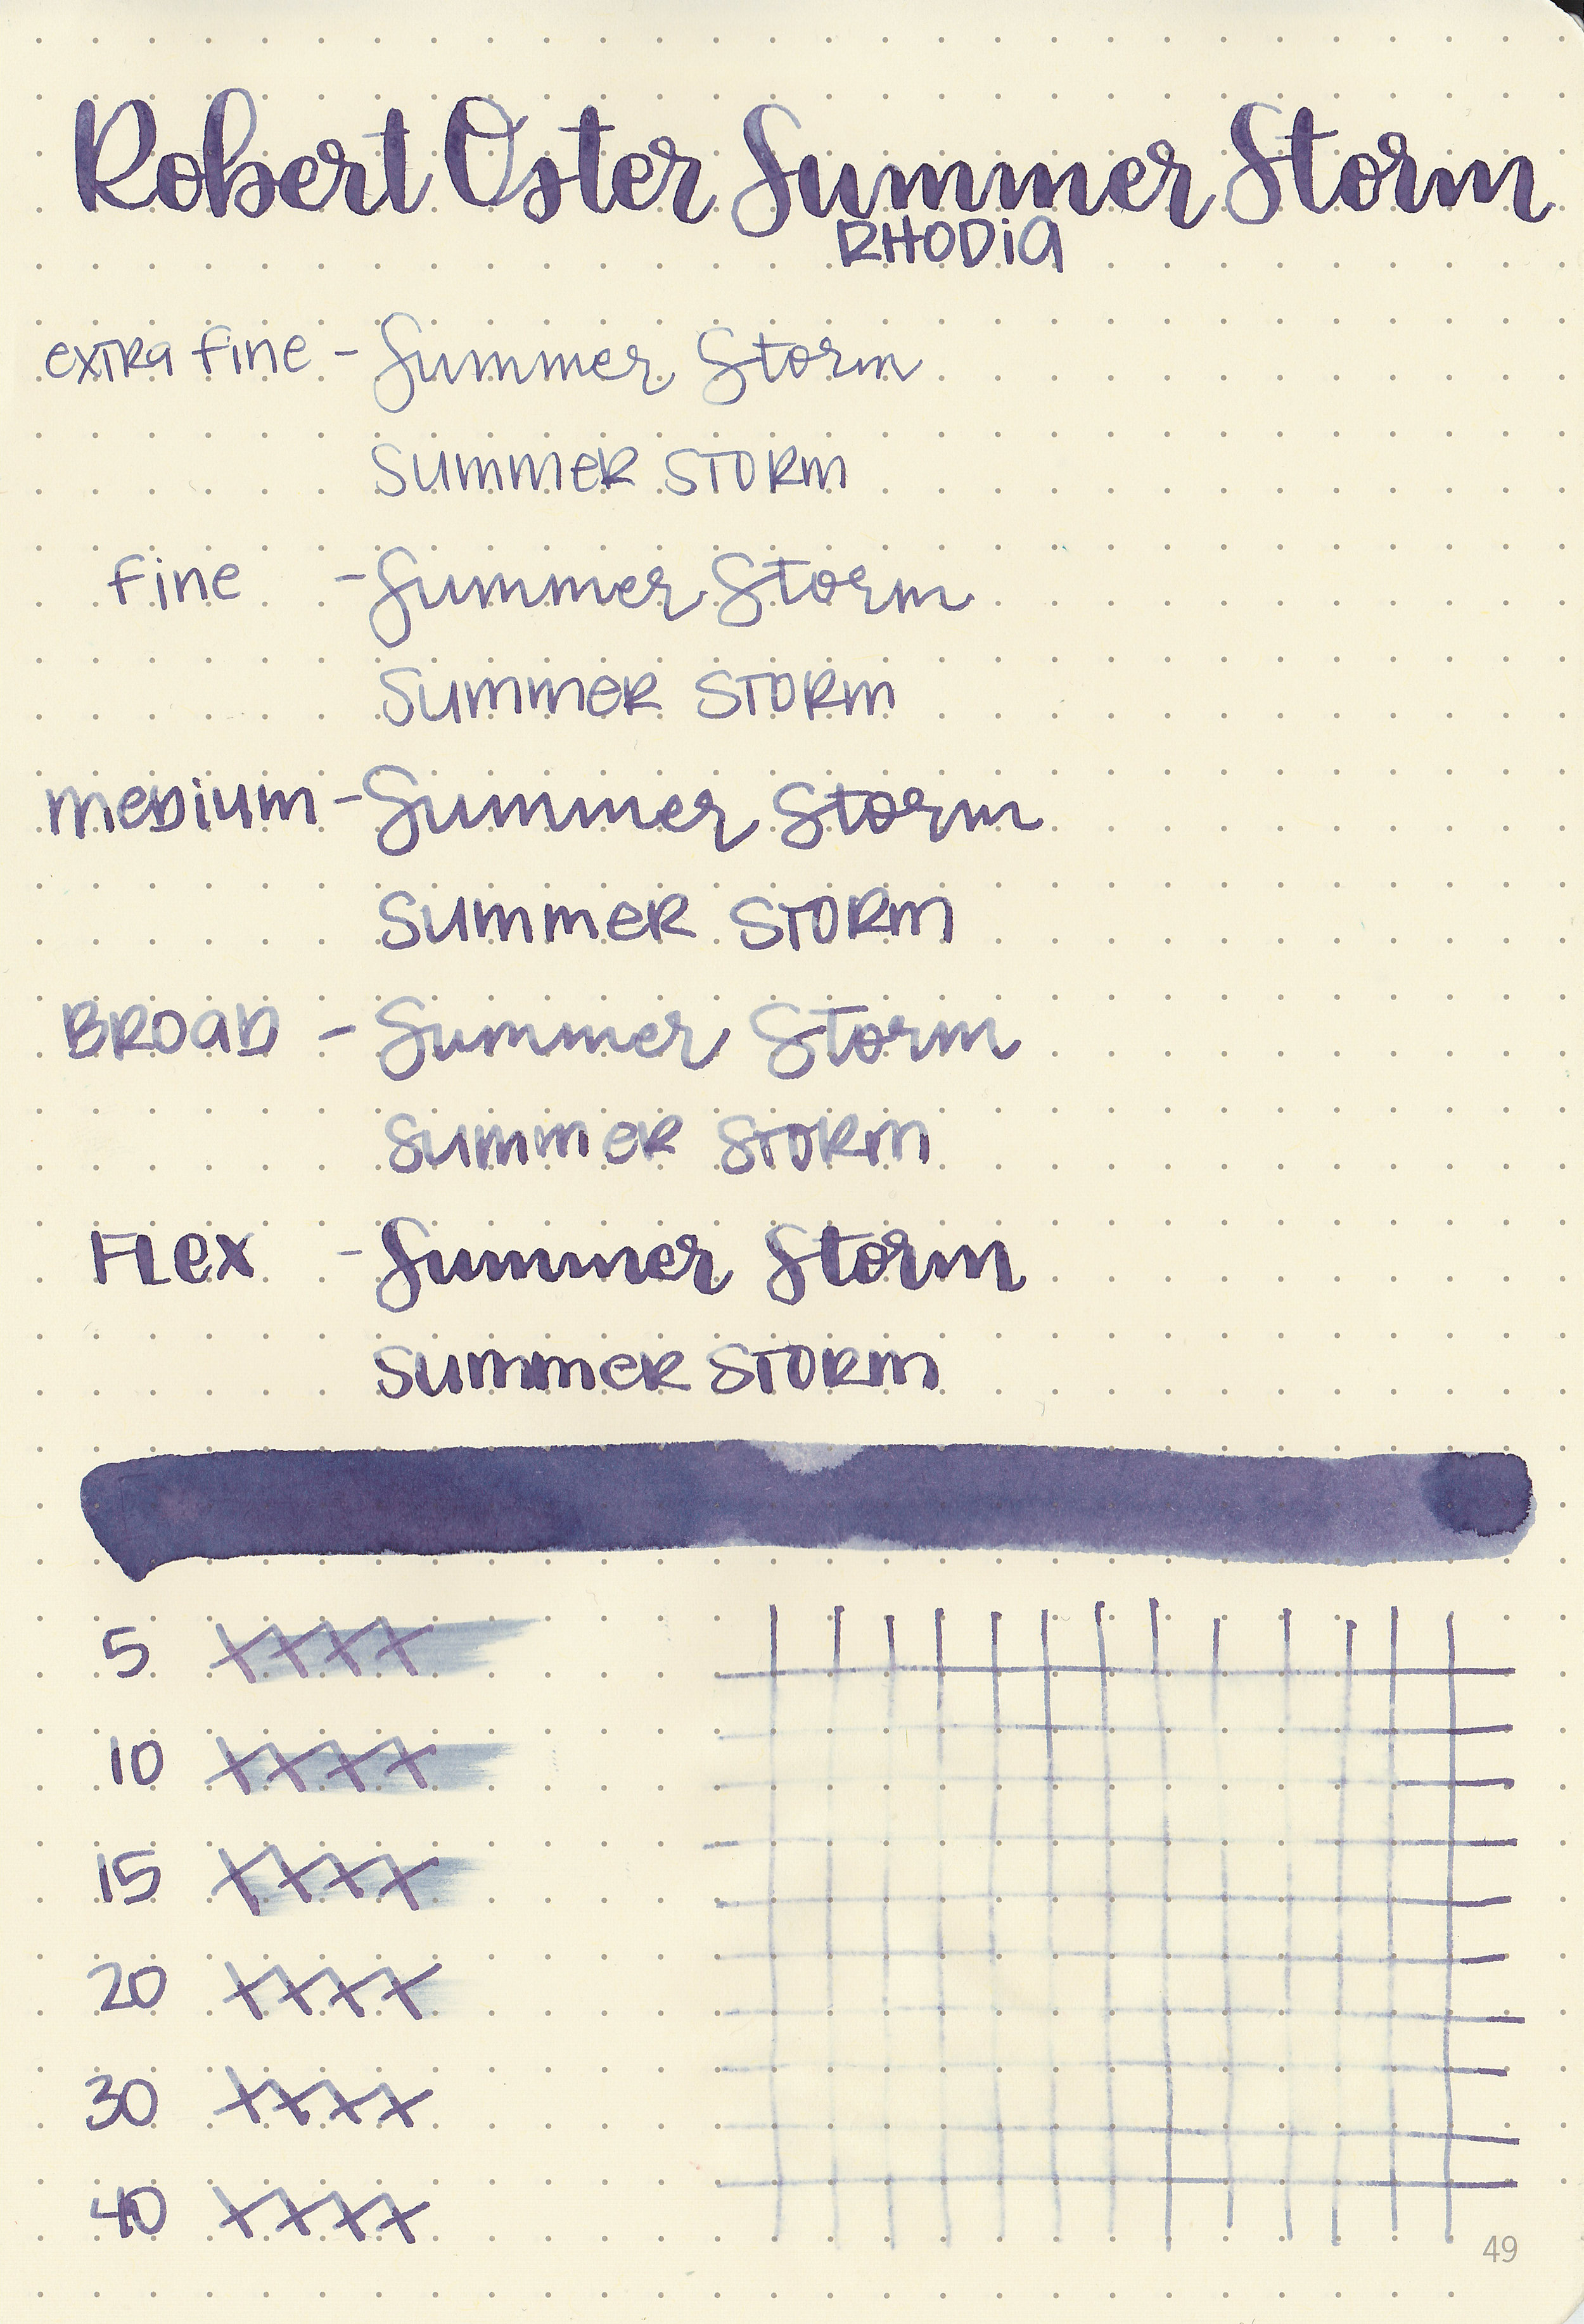 Robert Oster Summer Storm
RHODiA
exTRa fine - Summer Storm
SummeR STORm
fine - Summer Storm
SummeR STORm
meDium - Summer Storm
SummeR STORm
BROaD - Summer Storm
SummeR STORm
FLex - Summer Storm
SummeR STORm
5 XXXX
10 XXXX
15 XXXX
20 XXXX
30 XXXX
40 XXXX
49